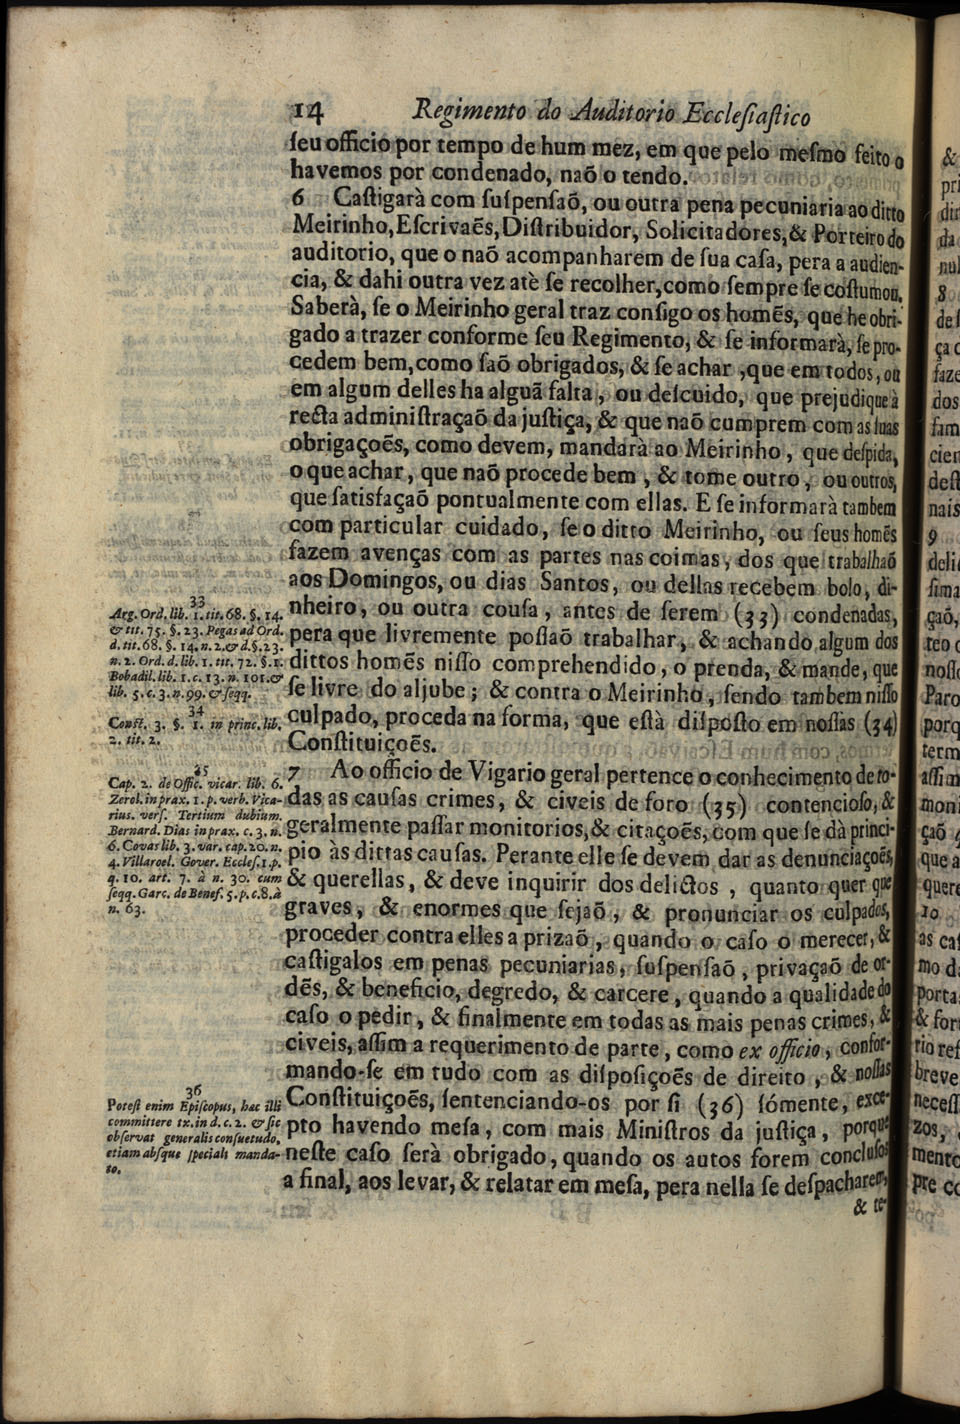 14 Regimento do Auditorio Ecclesiastico
ſeu officio por tempo de hum mez, em que pelo meſmo feito o
havemos por condenado, naõ o tendo.
6 Caſtigarà com ſuſpenſaõ, ou outra pena pecuniaria ao ditto
Meirinho, Eſcrivaẽs, Diſtribuidor, Solicitadores, & Porteiro do
auditorio, que o naõ acompanharem de ſua caſa, pera a audien-
cia, & dahi outra vez atè ſe recolher, como ſempre ſe coſtumou.
Saberà, ſe o Meirinho geral traz conſigo os homẽs, que he obri-
gado a trazer conforme ſeu Regimento, & ſe informarà, ſe pro-
cedem bem, como ſaõ obrigados, & ſe achar, que em todos, ou
em algum delles ha alguã falta, ou deſcuido, que prejudique à
recta adminiſtraçaõ da juſtiça, & que naõ cumprem com as ſuas
obrigaçoẽs, como devem, mandarà ao Meirinho, que deſpida,
o que achar, que naõ procede bem, & tome outro, ou outros,
que ſatisfaçaõ pontualmente com ellas. E ſe informarà tambem
com particular cuidado, ſe o ditto Meirinho, ou ſeus homẽs
fazem avenças com as partes nas coimas, dos que trabalhaõ
aos Domingos, ou dias Santos, ou dellas recebem bolo, di-
nheiro, ou outra couſa, antes de ſerem (33) condenadas,
pera que livremente poſſaõ trabalhar, & achando algum dos
dittos homẽs niſſo comprehendido, o prenda, & mande, que
ſe livre do aljube; & contra o Meirinho, ſendo tambem niſſo
culpado, proceda na forma, que eſtà diſpoſto em noſſas (34)
Conſtituiçoẽs.
7 Ao officio de Vigario geral pertence o conhecimento de to-
das as cauſas crimes, & civeis de foro (35) contencioſo, &
geralmente paſſar monitorios, & citaçoẽs, com que ſe dà princi-
pio às dittas cauſas. Perante elle ſe devem dar as denunciaçoẽs,
& querellas, & deve inquirir dos delictos, quanto quer que
graves, & enormes que ſejaõ, & pronunciar os culpados,
proceder contra elles a prizaõ, quando o caſo o merecer, &
caſtigalos em penas pecuniarias, ſuſpenſaõ, privaçaõ de or-
dẽs, & beneficio, degredo, & carcere, quando a qualidade do
caſo o pedir, & finalmente em todas as mais penas crimes, &
civeis, aſſim a requerimento de parte, como ex officio, confor-
mando-ſe em tudo com as diſpoſiçoẽs de direito, & noſſas
Conſtituiçoẽs, ſentenciando-os por ſi (36) ſómente, exce-
pto havendo meſa, com mais Miniſtros da juſtiça, porque
neſte caſo ſerà obrigado, quando os autos forem concluſos
a final, aos levar, & relatar em meſa, pera nella ſe deſpacharem,
& te-
33
Arg. Ord. lib. 1. tit. 68. §. 14.
& tit. 75. §. 23. Pegas ad Ord.
d. tit. 68. §. 14. n. 2. & d. §. 23.
n. 2. Ord. d. lib. 1. tit. 72. §. 1.
Bobadil. lib. 1. c. 13. n. 101. &
lib. 5. c. 3. n. 99. & ſeqq.
34
Conſt. 3. §. 1. in princ. lib.
2. tit. 2.
35
Cap. 2. de Offic. vicar. lib. 6.
Zerol. in prax. 1. p. verb. Vica-
rius. verſ. Tertium dubium.
Bernard. Dias in prax. c. 3. n.
6. Covas lib. 3. var. cap. 20. n.
4. Villaroel. Gover. Eccleſ. 1. p.
q. 10. art. 7. à n. 30. cum
ſeqq. Garc. de Beneſ. 5. p. c. 8. à
n. 63.
36
Poteſt enim Epiſcopus, hac illi
committere tx. in d. c. 2. & ſic
obſervat generalis conſuetudo,
etiam abſque ſpeciali manda-
to.
&
pri
dir
da
nul
8
de ſ
ça c
faze
dos
fam
cien
deſt
nais
9
deli
ſima
çaõ,
teo
noſſ
Paro
porq
term
aſſim
moni
çaõ
que a
quere
10
as caſ
mo d
porta
& for
rio reſ
breve
neceſſ
zos,
mento
pre co